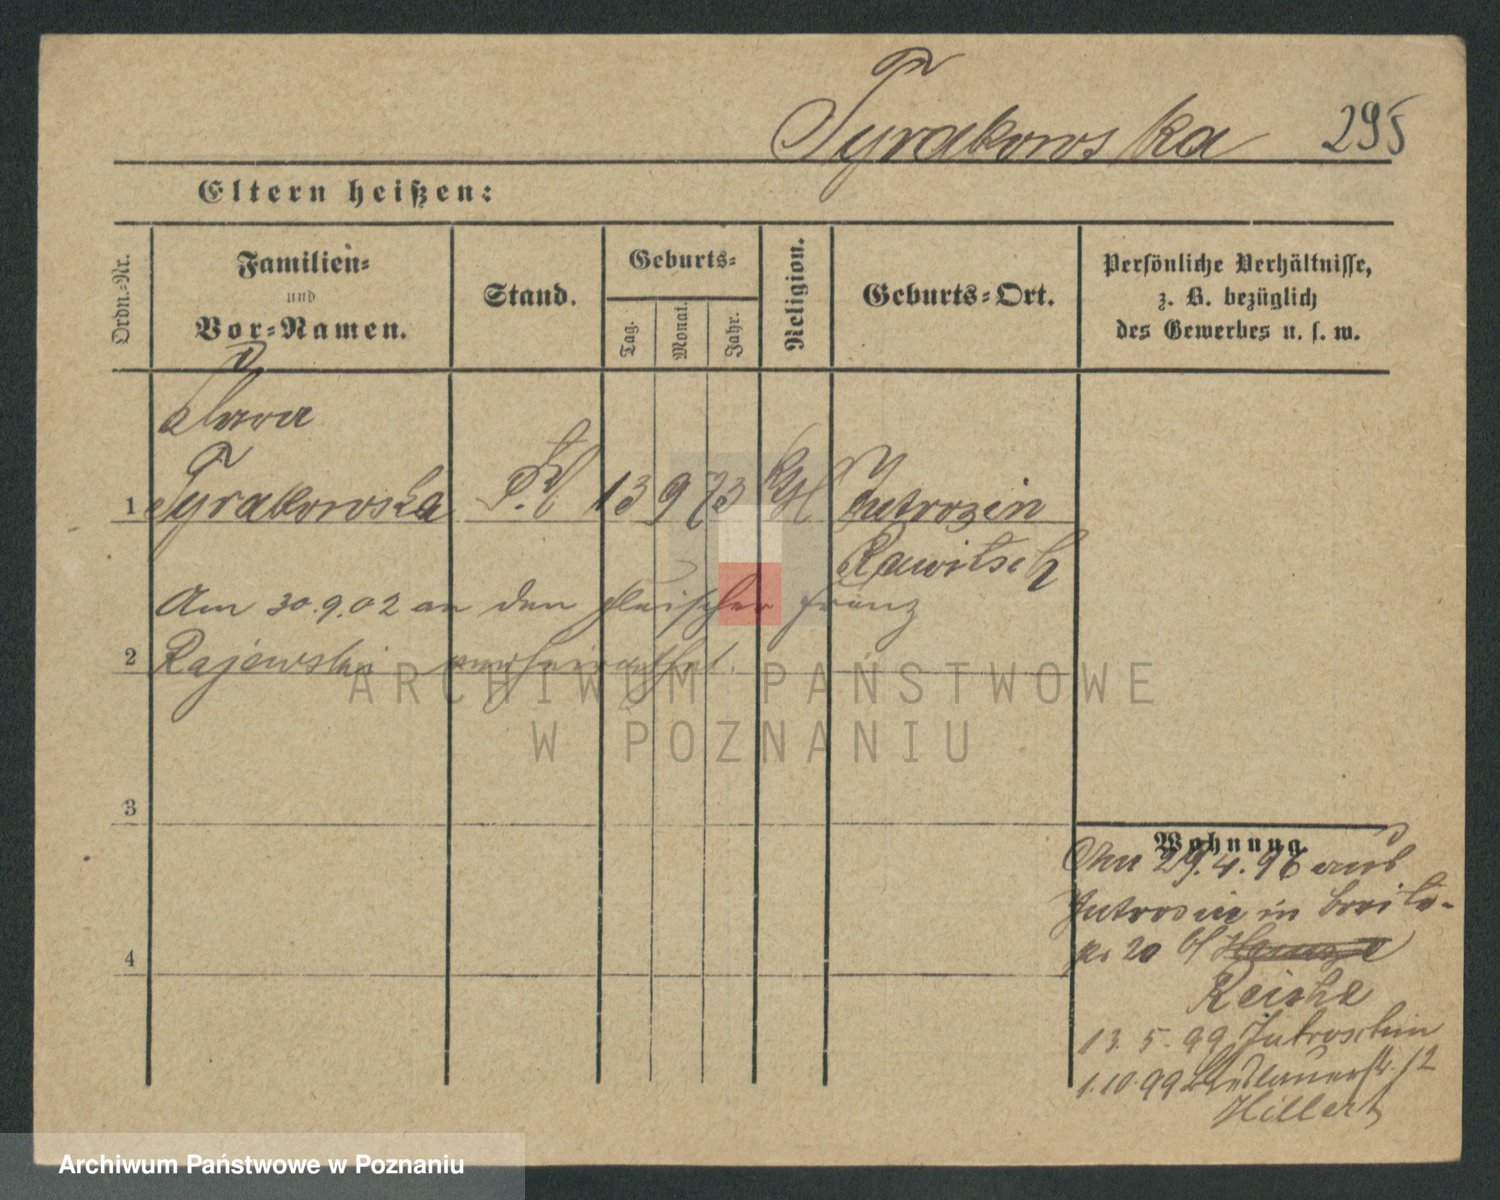 Tyrakowska 295
Eltern heißen:
Ordn.-Nr.
Familien-
und
Vor-Namen.
Stand.
Geburts-
Tag.
Monat.
Jahr.
Religion.
Geburts-Ort.
Persönliche Verhältnisse,
z. B. bezüglich
des Gewerbes u. s. w.
Clara
1 Tyrakowska 13 9 73 kth Jutrozin
Rawitsch
Am 30.9.02 an den Fleischer Franz
2 Rajewski verheirathet.
3
4
Wohnung
Am 29.4.96 aus
Jutrosin in Breite-
str 20 b/
Reiche
13.5.99 Jutroschin
1.10.99 12
Hillert
ARCHIWUM PAŃSTWOWE
W POZNANIU
Archiwum Państwowe w Poznaniu